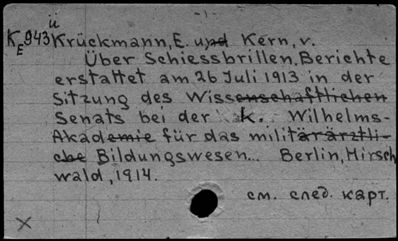 ü
KE943 Krückmann, E. und Kern, v.
Über Schiessbrillen, Berichte
erstattet am 26 Juli 1913 in der
Sitzung des Wissenschaftlichen
Senats bei der K. Wilhelms-
Akademie für das militärärztli-
che Bildungswesen... Berlin, Hirsch
wald, 1914.
см. след. карт.